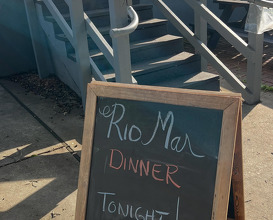 @Rio Mar
DINNER
TONIGHT!